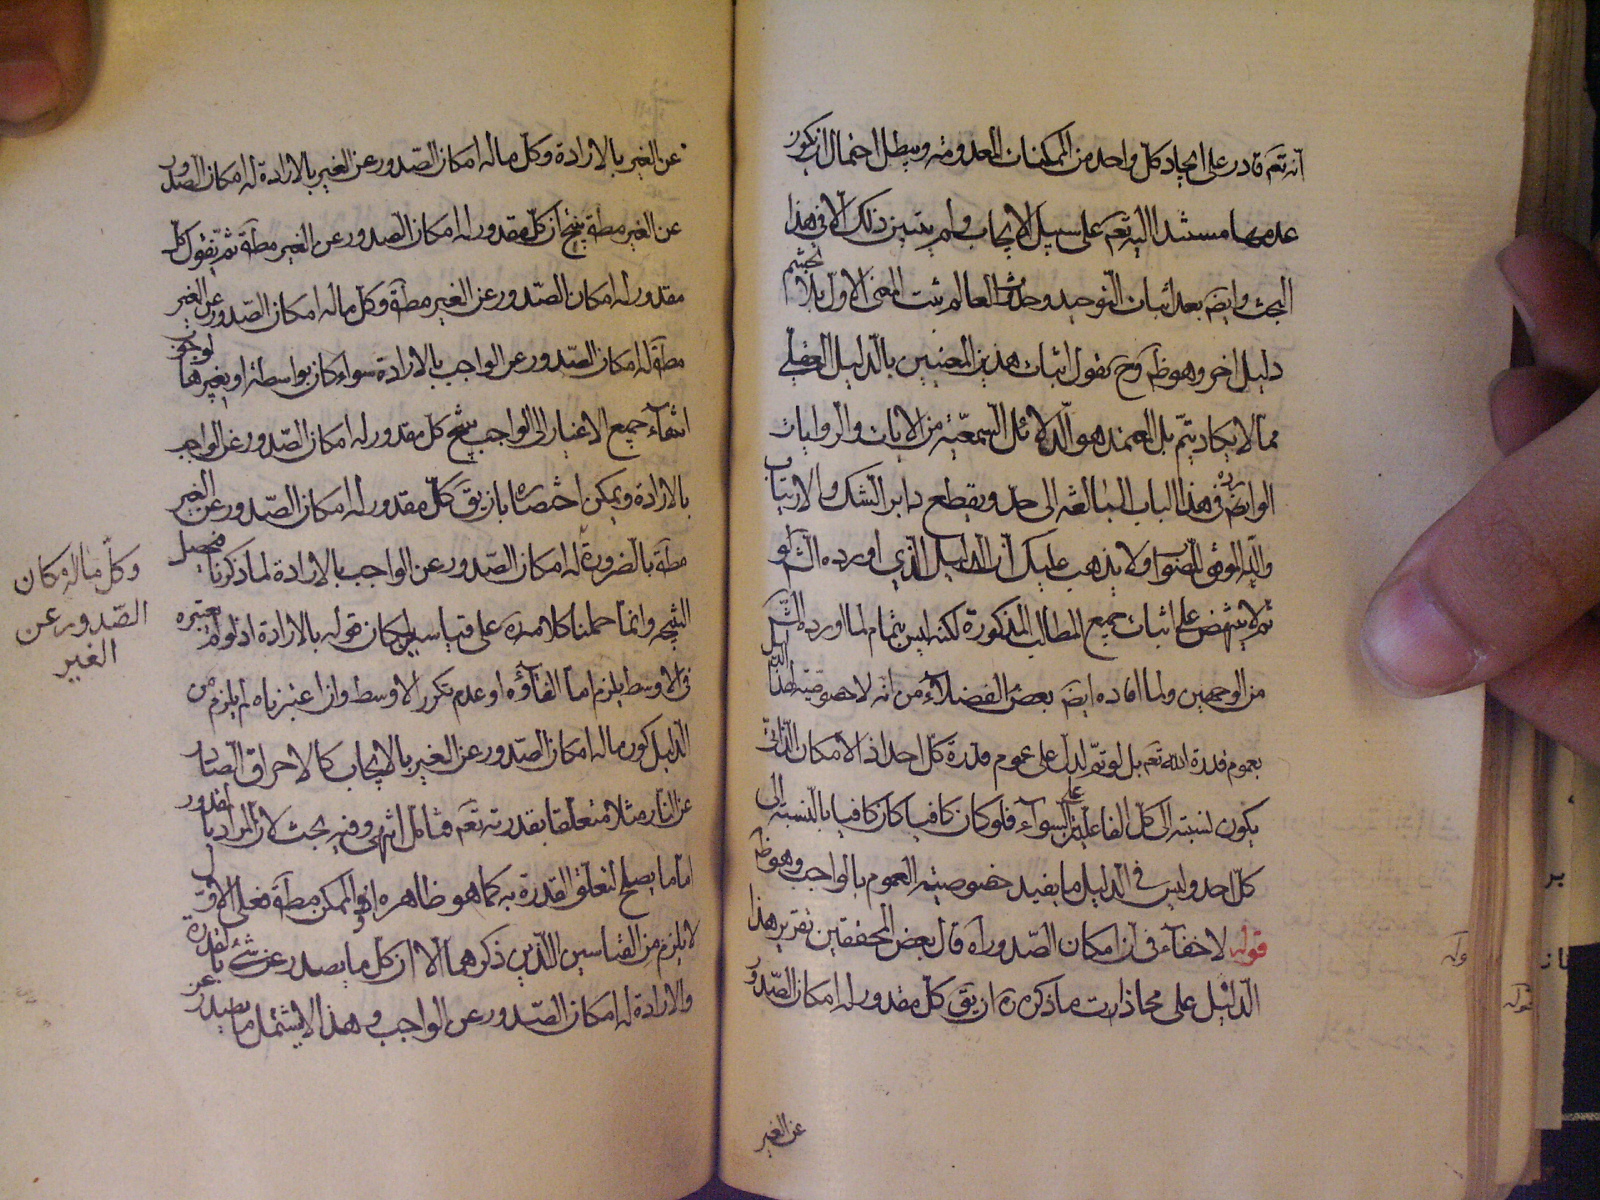 انه تعم قادر على ايجاد كل واحد من الممكنات المعدومة ويبطل احتمال ان يكون
عدمها مستندا اليه تعم على سبيل الايجاب ولم يتبين ذلك الا في هذا
البحث وايضم بعد اثبات التوحيد وحدوث العالم يثبت المعنى الاول بلا تجشم
دليل اخر وهو ظم وح نقول اثبات هذين المعنيين بالدليل العقلي
مما لا يكاد يتم بل العمدة هو الدلائل السمعية من الايات والروايات
الواردة في هذا الباب البالغة الى حد ويقطع دابر الشك والارتياب
والله الموفق للصواب ولا يذهب عليك ان الدليل الذي اورده الش لو
تم لانتهض على اثبات جميع المطالب المذكورة لكنه ليس بتمام لما اورده الش
من الوجهين ولما افاده ايضم بعض الفضلاء من انه لا خصوصية لهذا الدليل
بعموم قدرة الله تعم بل لو تم لدل على عموم قدرة كل احد اذ الامكان الذاتي
يكون لنسبته الى كل الفاعلين على السواء فلو كان كافيا كان كافيا بالنسبة الى
كل احد وليس في الدليل ما يفيد خصوصية العموم بالواجب وهو ظم
قوله لا خفاء في ان امكان الصدور اه قال بعض المحققين تقرير هذا
الدليل على محاذات ما ذكره ره ان يق كل مقدور له امكان الصدور
عن الغير
عن الغير بالارادة وكل ما له امكان الصدور عن الغير بالارادة له امكان الصدور
عن الغير مطة ينتج ان كل مقدور له امكان الصدور عن الغير مطة ثم نقول كل
مقدور له امكان الصدور عن الغير مطة وكل ما له امكان الصدور عن الغير
مطة له امكان الصدور عن الواجب بالارادة سواء كان بواسطة او بغيرها لوجوب
انتهاء جميع الاغيار الى الواجب ينتج كل مقدور له امكان الصدور عن الواجب
بالارادة ويمكن اختصاره بان يق كل مقدور له امكان الصدور عن الغير
وكل ما له امكان
الصدور عن
الغير
مطة بالضرورة له امكان الصدور عن الواجب بالارادة لما ذكرنا فيحصل
النتيجة وانما حملنا كلامه ره على قياسين لمكان قوله بالارادة اذ لو لم نعتبره
في الاوسط يلزم اما الغاؤه او عدم تكرر الاوسط وان اعتبرناه لم يلزم من
الدليل كون ما له امكان الصدور عن الغير بالايجاب كالاحراق الصادر
عن النار مثلا متعلقا بقدرته تعم فتامل انتهى وفيه بحث لان المراد بالمقدور
اما ما يصلح لتعلق القدرة به كما هو ظاهره او الممكن مطة فعلى الاول
لا يلزم من القياسين اللذين ذكرهما الا ان كل ما يصدر عن شئ بالقدرة
والارادة له امكان الصدور عن الواجب وهذا لا يشمل ما يصدر عن